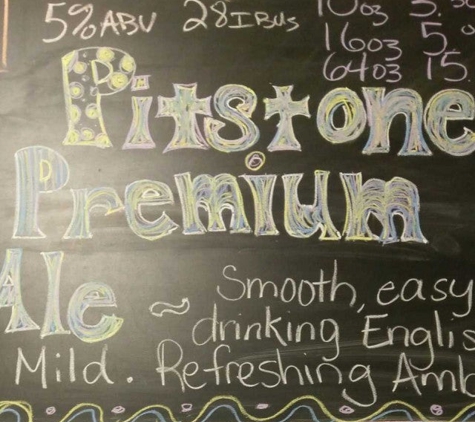 5% ABV 28 IBUs
10oz 3.50
16oz 5.
64oz 15
Pitstone
Premium
Ale ~ Smooth, easy
drinking Englis
Mild. Refreshing Amb